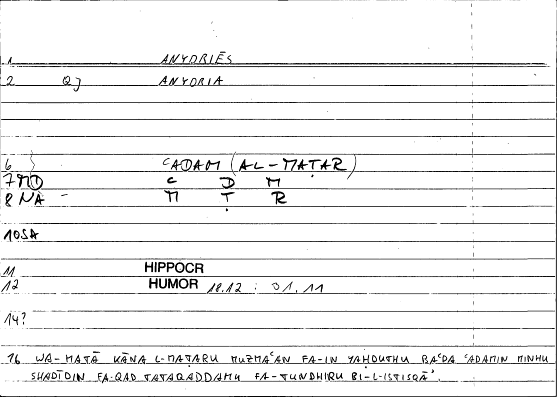 1 ANYDRIĒS
2 Qj ANYDRIA
6 } ʿADAM (AL-MAṬAR)
7 MD ʿ D M
8 NA - M Ṭ R
10 SA
11 HIPPOCR
12 HUMOR 18.12 : 01, 11
14?
16 WA-MATĀ KĀNA L-MAṬARU MUZMAʿAN FA-IN YAḤDUTHU BAʿDA ʿADAMIN MINHU
SHADĪDIN FA-QAD TATAQADDAMU FA-TUNDHIRU BI-L-ISTISQĀʾ.